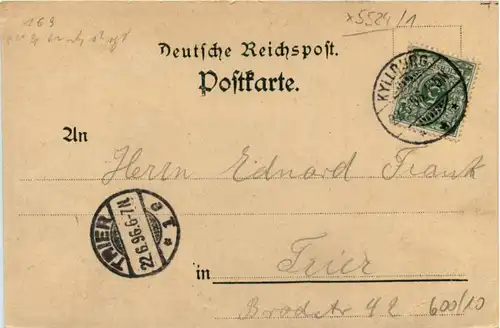 169
x5524/1
Deutsche Reichspost.
Postkarte.
KYLLBURG
An
Herrn Eduard Frank
TRIER
22.6.96.6-7N.
* 1 e
in Trier
Brodstr 42 600/10